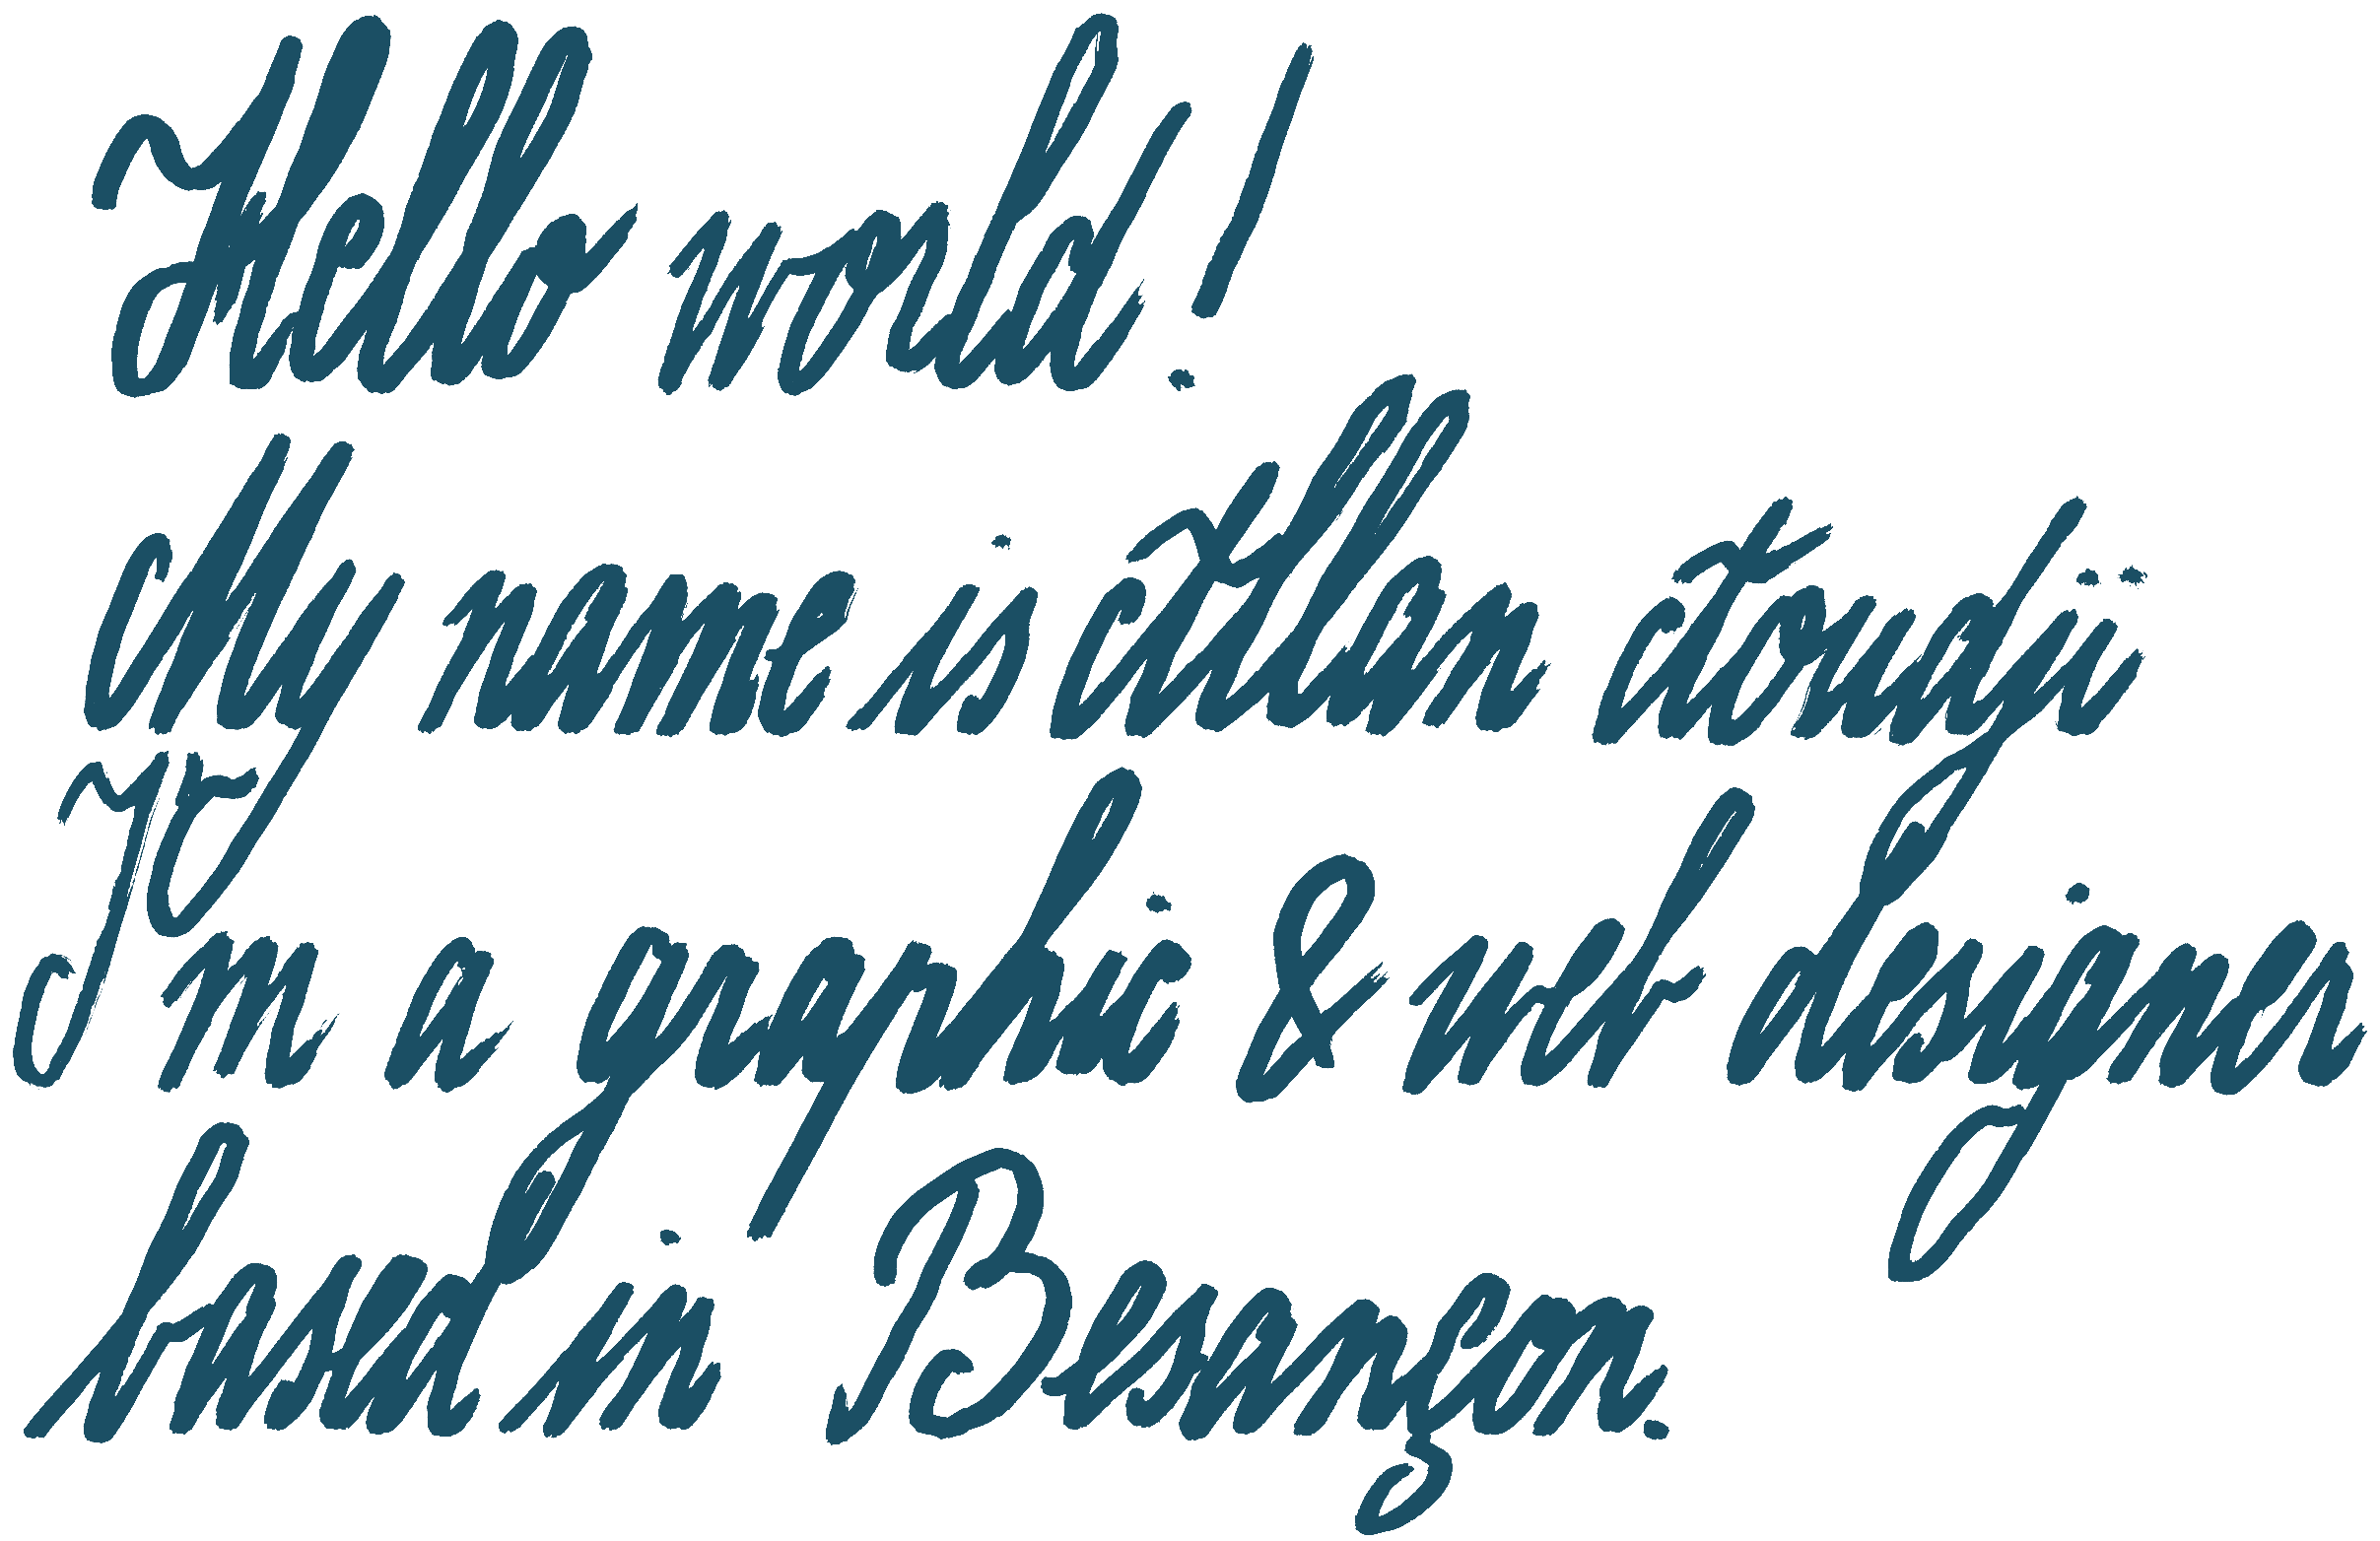 Hello world!
My name is
I'm a graphic & web designer
based in Besançon.